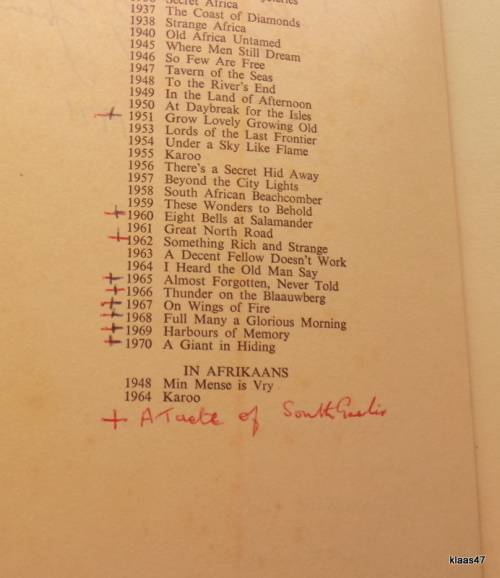 Secret Africa
1937 The Coast of Diamonds
1938 Strange Africa
1940 Old Africa Untamed
1945 Where Men Still Dream
1946 So Few Are Free
1947 Tavern of the Seas
1948 To the River's End
1949 In the Land of Afternoon
1950 At Daybreak for the Isles
+ 1951 Grow Lovely Growing Old
1953 Lords of the Last Frontier
1954 Under a Sky Like Flame
1955 Karoo
1956 There's a Secret Hid Away
1957 Beyond the City Lights
1958 South African Beachcomber
1959 These Wonders to Behold
+ 1960 Eight Bells at Salamander
1961 Great North Road
+ 1962 Something Rich and Strange
1963 A Decent Fellow Doesn't Work
1964 I Heard the Old Man Say
+ 1965 Almost Forgotten, Never Told
+ 1966 Thunder on the Blaauwberg
+ 1967 On Wings of Fire
+ 1968 Full Many a Glorious Morning
+ 1969 Harbours of Memory
+ 1970 A Giant in Hiding
IN AFRIKAANS
1948 Min Mense is Vry
1964 Karoo
+ A Taste of South Easter
klaas47